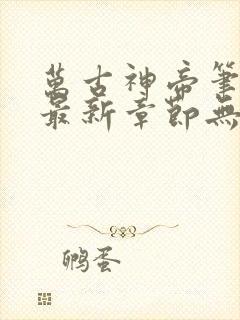 萬古神帝筆
最新章節無
鸭蛋